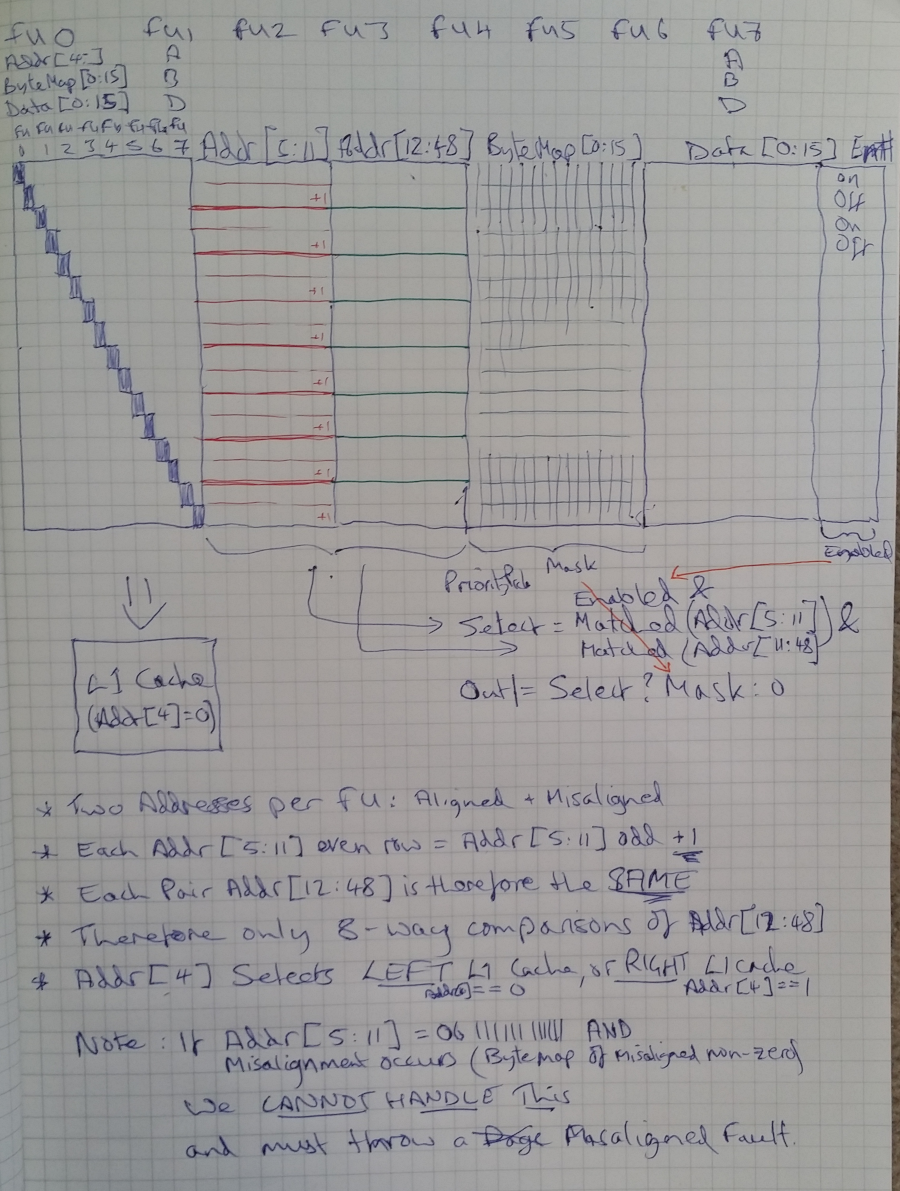 fu0 fu1 fu2 fu3 fu4 fu5 fu6 fu7
Addr[4:] A A
ByteMap[0:15] B B
Data[0:15] D D
fu fu fu fu fu fu fu fu
0 1 2 3 4 5 6 7 Addr[5:11] Addr[12:48] ByteMap[0:15] Data[0:15]
on
Off
On
Off
+1
+1
+1
+1
+1
+1
+1
+1
Enabled
Mask
Enabled &
Select = Matched(Addr[5:11]) &
Matched(Addr[11:48]
Out|= Select? Mask: 0
L1 Cache
(Addr[4]=0)
* Two Addresses per fu: Aligned + Misaligned
* Each Addr[5:11] even row = Addr[5:11] odd +1
* Each Pair Addr[12:48] is therefore the SAME
* Therefore only 8-way comparisons of Addr[12:48]
* Addr[4] Selects LEFT L1 Cache, or RIGHT L1 cache
== 0 Addr[4]==1
Note: If Addr[5:11] = 0b 11111111111 AND
Misalignment occurs (Bytemap of Misaligned non-zero)
We CANNOT HANDLE This
and must throw a Misaligned Fault.